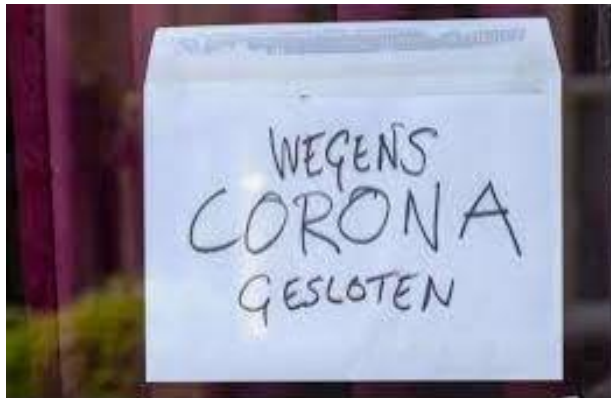 WEGENS
CORONA
GESLOTEN